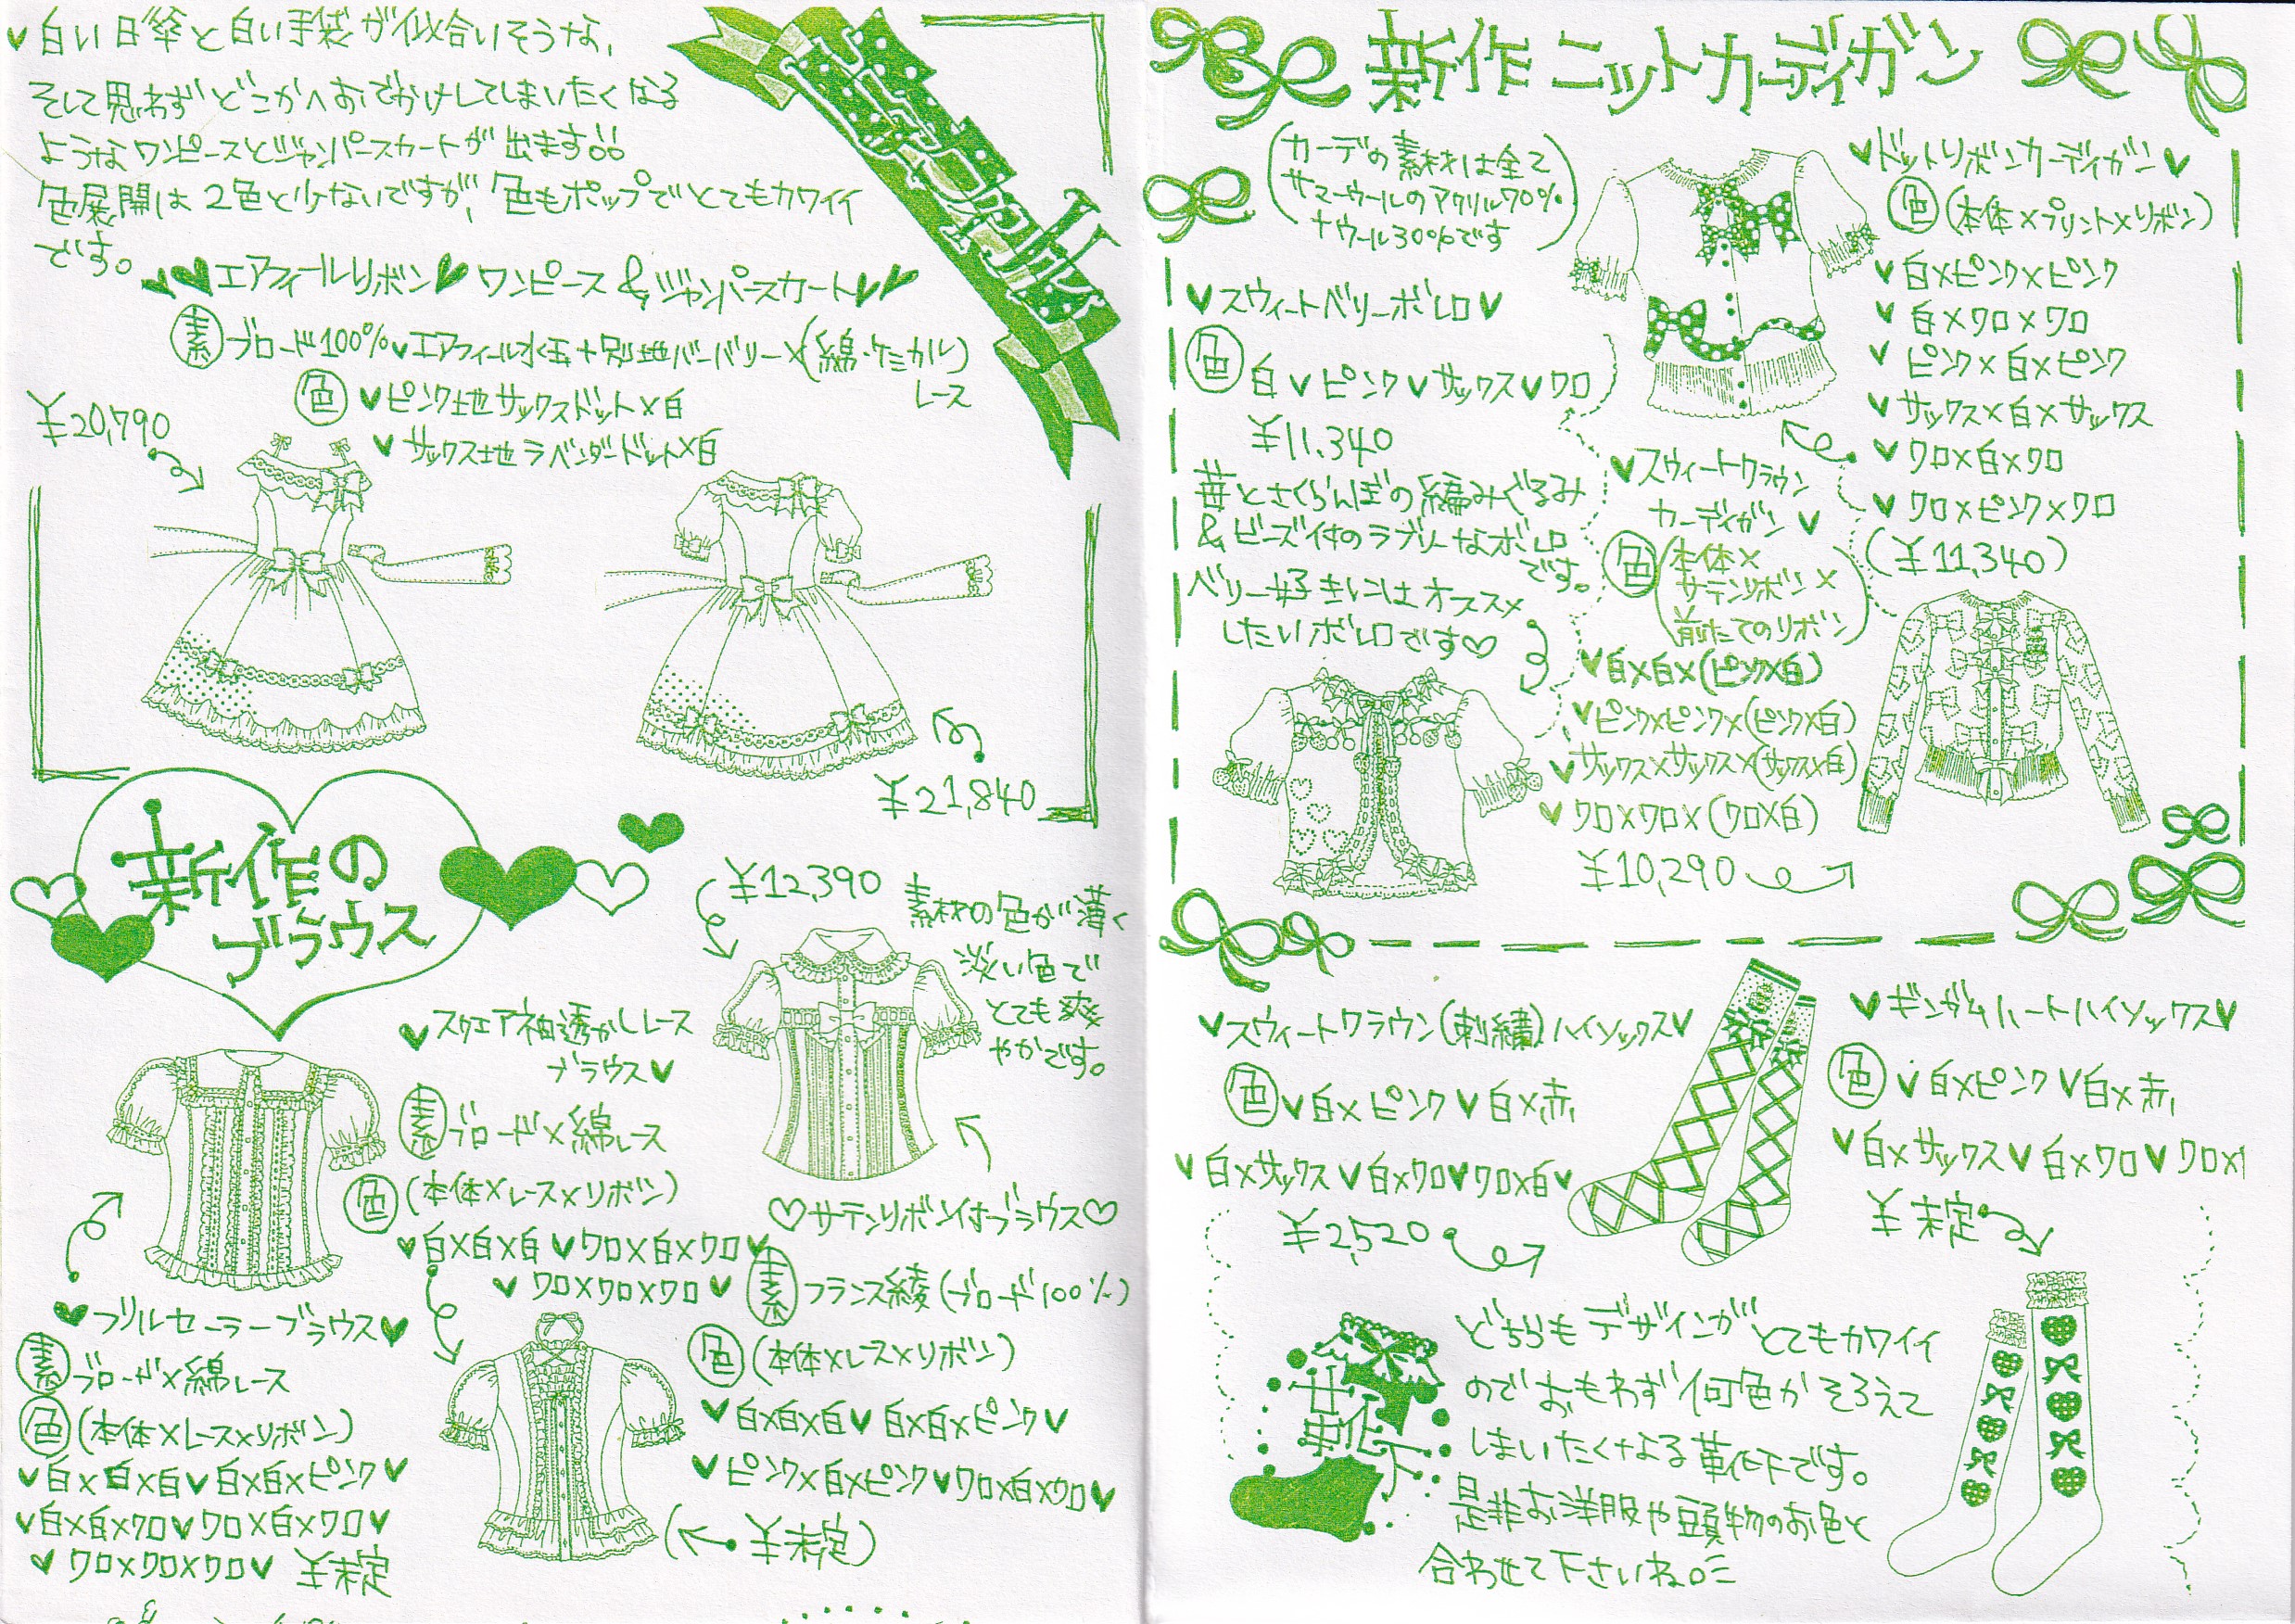 白い日傘と白い手袋が似合いそうな、
そして思わずどこかへおでかけしてしまいたくなる
ようなワンピースとジャンパースカートが出ます!!
色展開は2色と少ないですが、色もポップでとてもカワイイ
です。
エアフィールリボン ワンピース&ジャンパースカート
素 ブロード100% エアフィール水玉+別地バーバリー×(綿・ケミカル)
レース
色 ピンク地サックスドット×白
サックス地ラベンダードット×白
¥20,790
¥21,840
新作の
ブラウス
¥12,390
素材の色が薄く
淡い色で
とても爽
やかです。
スクエア袖透かしレース
ブラウス
素 ブロード×綿レース
色 (本体×レース×リボン)
白×白×白 クロ×白×クロ
クロ×クロ×クロ
サテンリボン付ブラウス
素 フランス綾(ブロード100%)
色 (本体×レース×リボン)
白×白×白 白×白×ピンク
ピンク×白×ピンク クロ×白×クロ
(← ¥未定)
フリルセーラーブラウス
素 ブロード×綿レース
色 (本体×レース×リボン)
白×白×白 白×白×ピンク
白×白×クロ クロ×白×クロ
クロ×クロ×クロ ¥未定
新作ニットカーディガン
(カーデの素材は全て
サマーウールのアクリル70%
ナウール30%です)
ドットリボンカーディガン
色 (本体×プリント×リボン)
白×ピンク×ピンク
白×クロ×クロ
ピンク×白×ピンク
サックス×白×サックス
クロ×白×クロ
クロ×ピンク×クロ
(¥11,340)
スウィートベリーボレロ
色 白 ピンク サックス クロ
¥11,340
苺とさくらんぼの編みぐるみ
&ビーズ付のラブリーなボレロ
です。
ベリー好きにはオススメ
したいボレロです♡
スウィートクラウン
カーディガン
色 (本体×
サテンリボン×
前たてのリボン)
白×白×(ピンク×白)
ピンク×ピンク×(ピンク×白)
サックス×サックス×(サックス×白)
クロ×クロ×(クロ×白)
¥10,290
スウィートクラウン(刺繍)ハイソックス
色 白×ピンク 白×赤
白×サックス 白×クロ クロ×白
¥2,520
ギンガムハートハイソックス
色 白×ピンク 白×赤
白×サックス 白×クロ クロ×
¥未定
靴下
どちらもデザインがとてもカワイイ
のでおもわず何色かそろえて
しまいたくなる靴下です。
是非お洋服や頭物のお色と
合わせて下さいね。